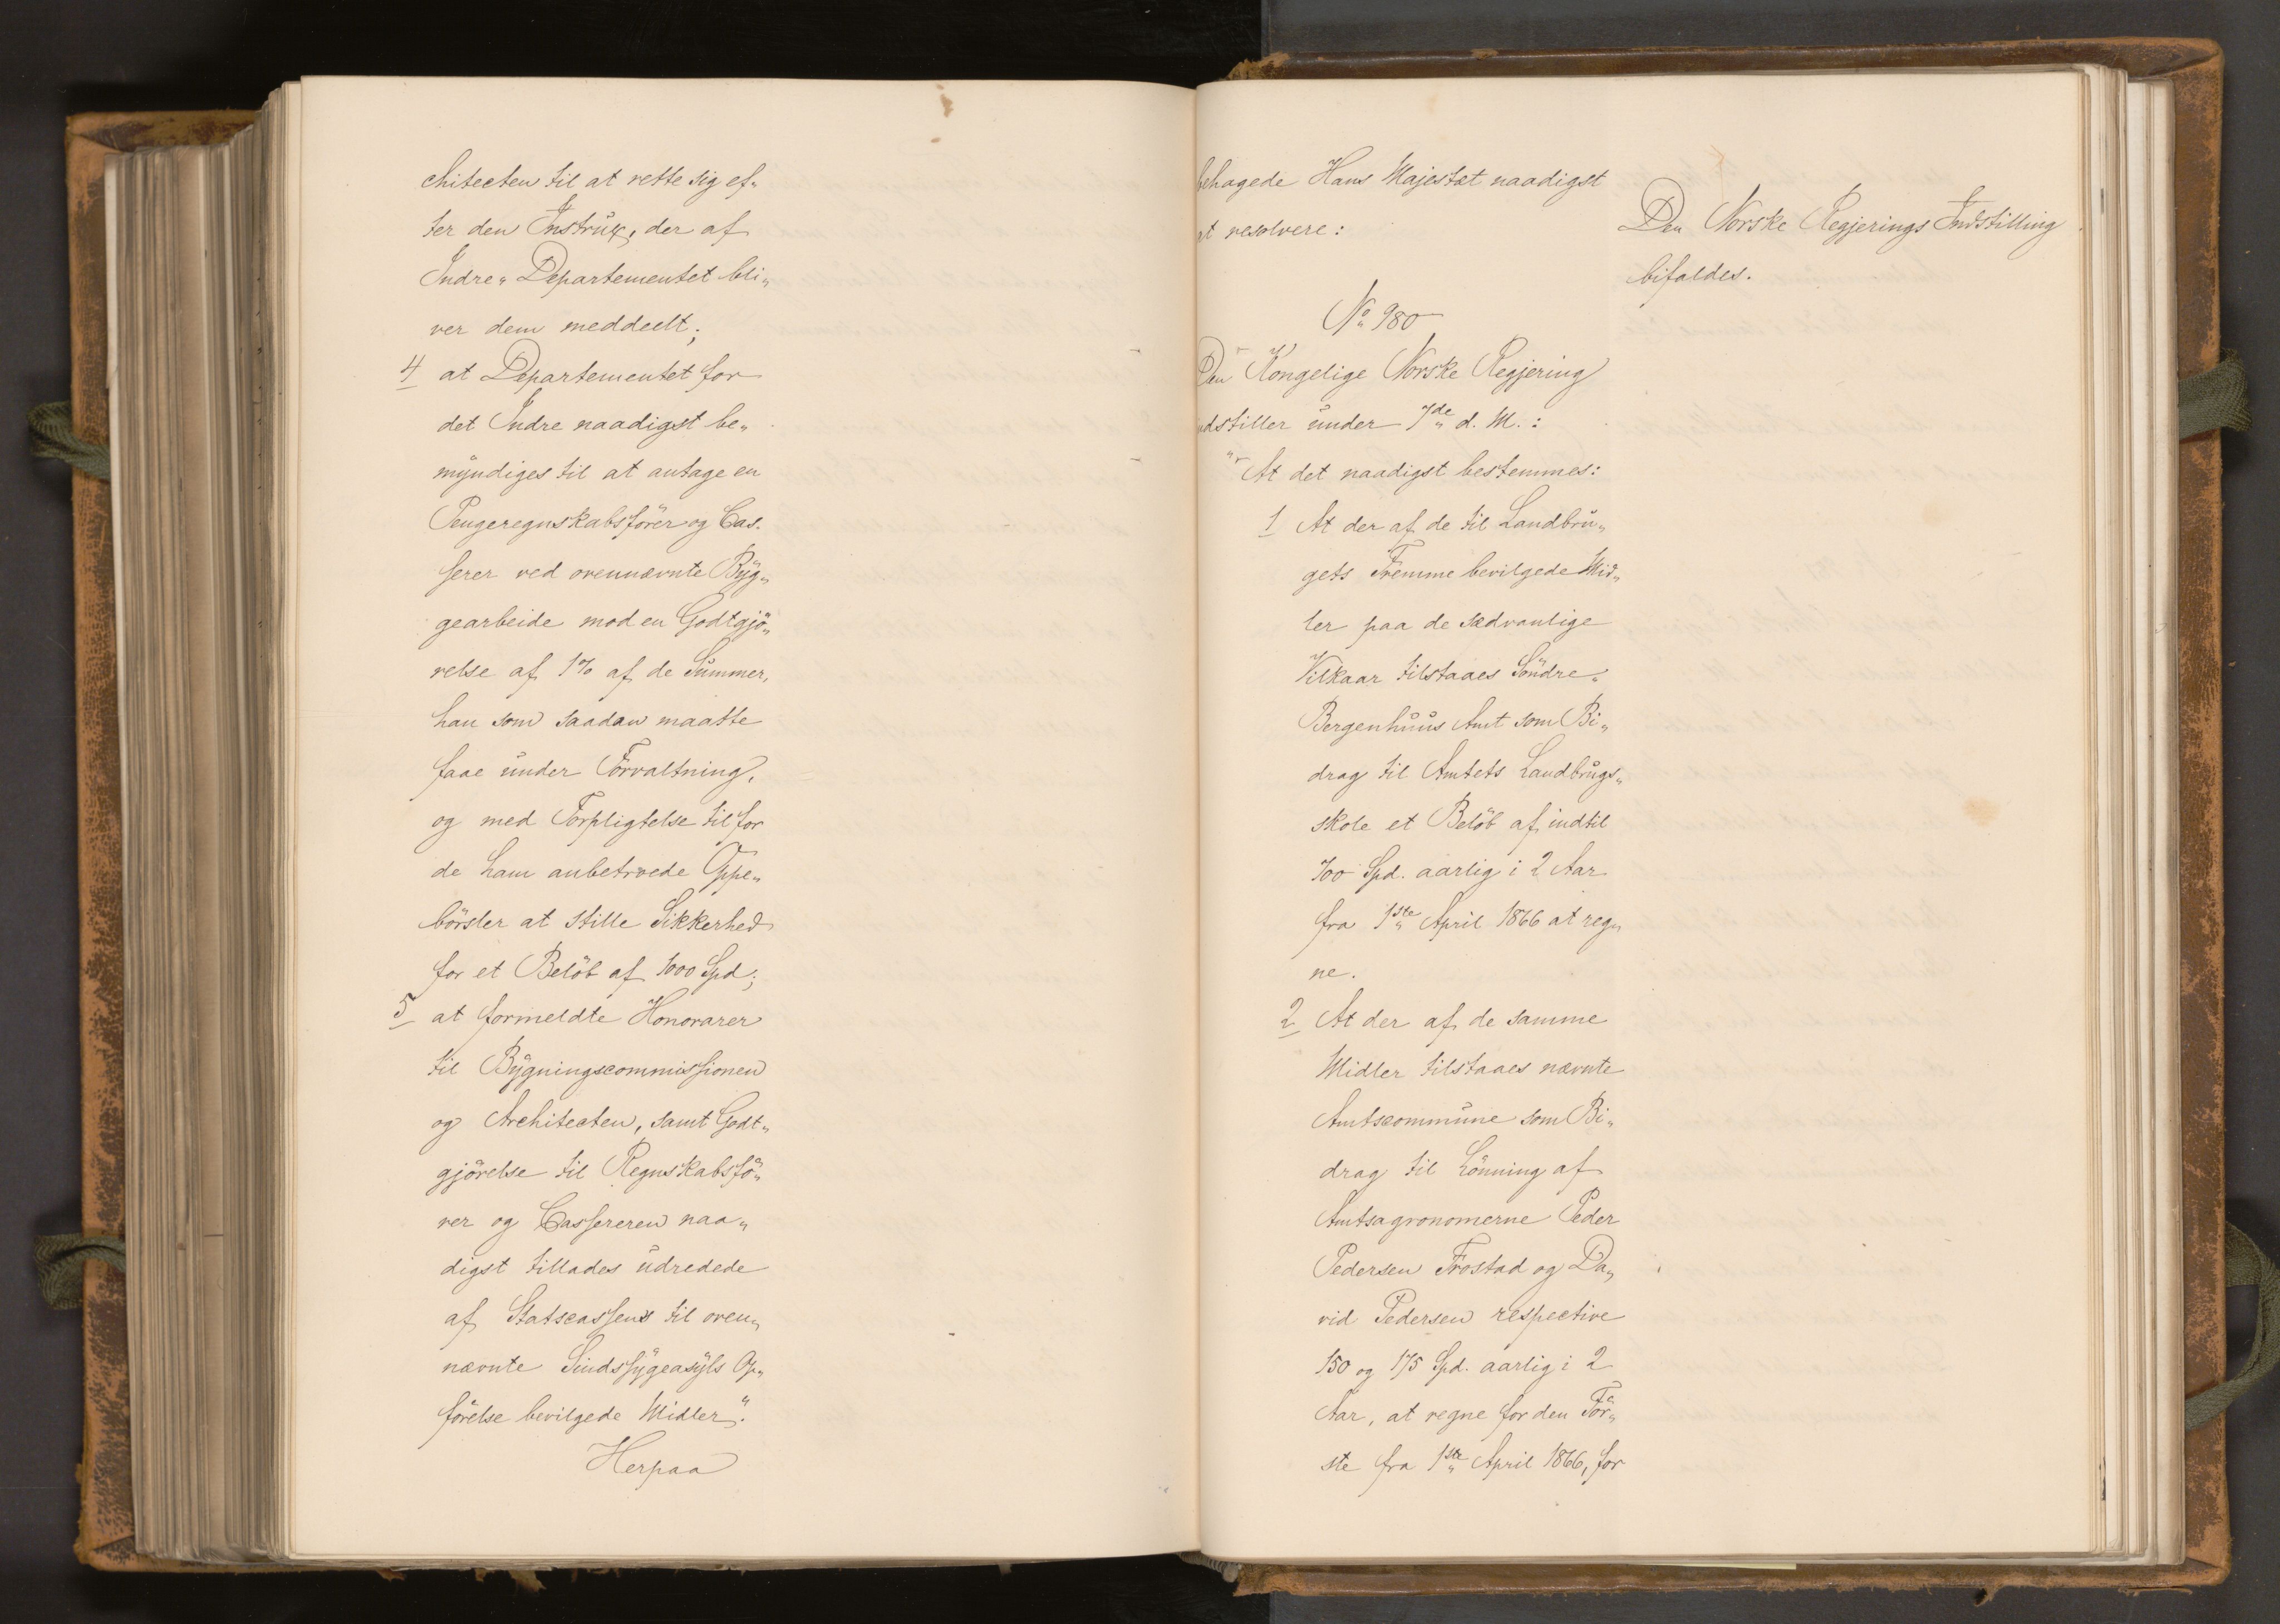 chitecten til at rette sig ef„
ter den Instrux, der af
Indre„ Departementet bli„
ver dem meddeelt;
4 at Departementet for
det Indre naadigst be„
myndiges til at antage en
Pengeregnskabsfører og Cas„
serer ved ovennævnte Byg„
gearbeide mod en Godtgjö„
relse af 1% af de Summer,
han som saadan maatte
faae under Forvaltning,
og med Forpligtelse til for
de ham anbetroede Oppe„
börsler at stille Sikkerhed
for et Belöb af 1000 Spd;
5 at formeldte Honorarer
til Bygningscommissionen
og Architecten, samt Godt„
gjörelse til Regnskabsfö„
rer og Cassereren naa„
digst tillades udredede
af Statscassens til oven„
nævnte Sindssygeasyls Op„
förelse bevilgede Midler".
Herpaa
behagede Hans Majestæt naadigst
at resolvere:
Den Norske Regjerings Indstilling
bifaldes.
No 980
Den Kongelige Norske Regjering
indstiller under 7de d. M.:
"At det naadigst bestemmes:
1 At der af de til Landbru„
gets Fremme bevilgede Mid„
ler paa de sædvanlige
Vilkaar tilstaaes Söndre„
Bergenhuus Amt som Bi„
drag til Amtets Landbrugs„
skole et Belöb af indtil
700 Spd. aarlig i 2 Aar
fra 1ste April 1866 at reg„
ne.
2 At der af de samme
Midler tilstaaes nævnte
Amtscommune som Bi„
drag til Lönning af
Amtsagronomerne Peder
Pedersen Frostad og Da„
vid Pedersen respective
150 og 175 Spd. aarlig i 2
Aar, at regne for den För„
ste fra 1ste April 1866, for